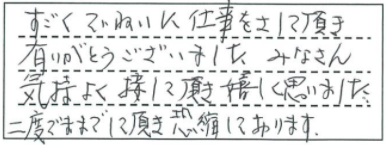 すごくていねいに仕事をさして頂き
有りがとうございました みなさん
気持よく接して頂き嬉しく思いました、
二度でままでして頂き恐縮しております.